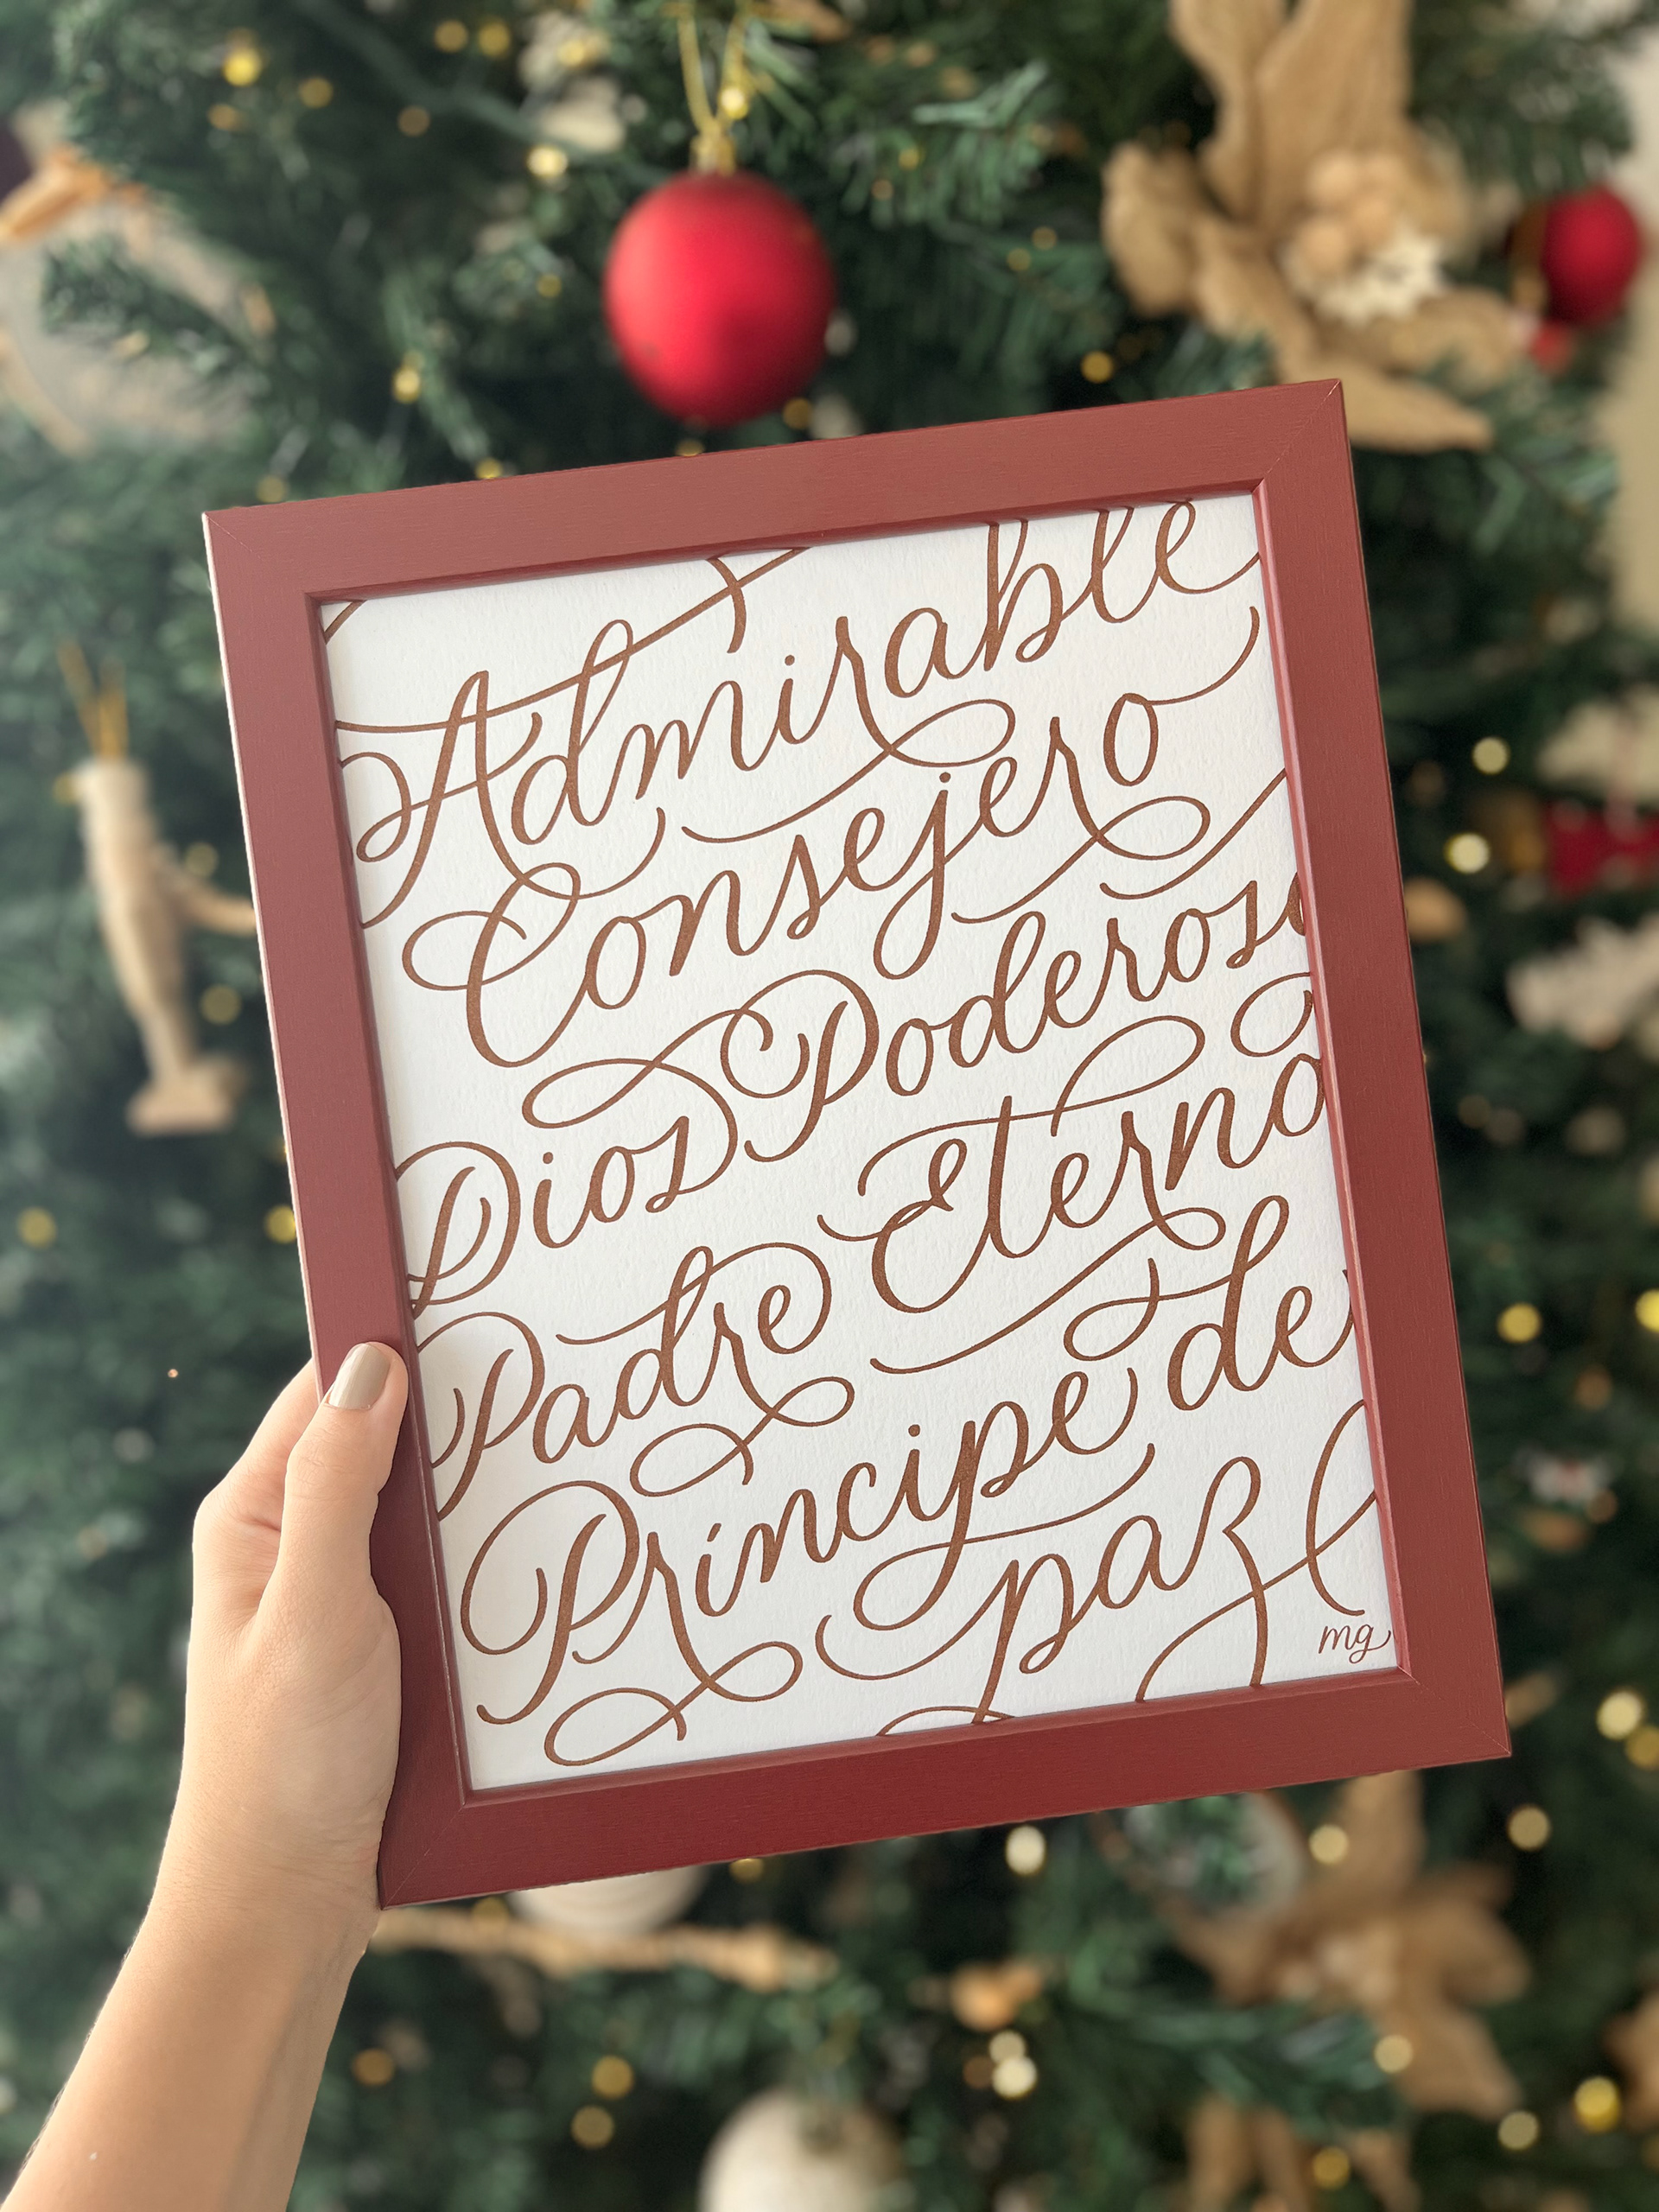 Admirable
Consejero
Dios Poderoso
Padre Eterno
Príncipe de
paz
mg